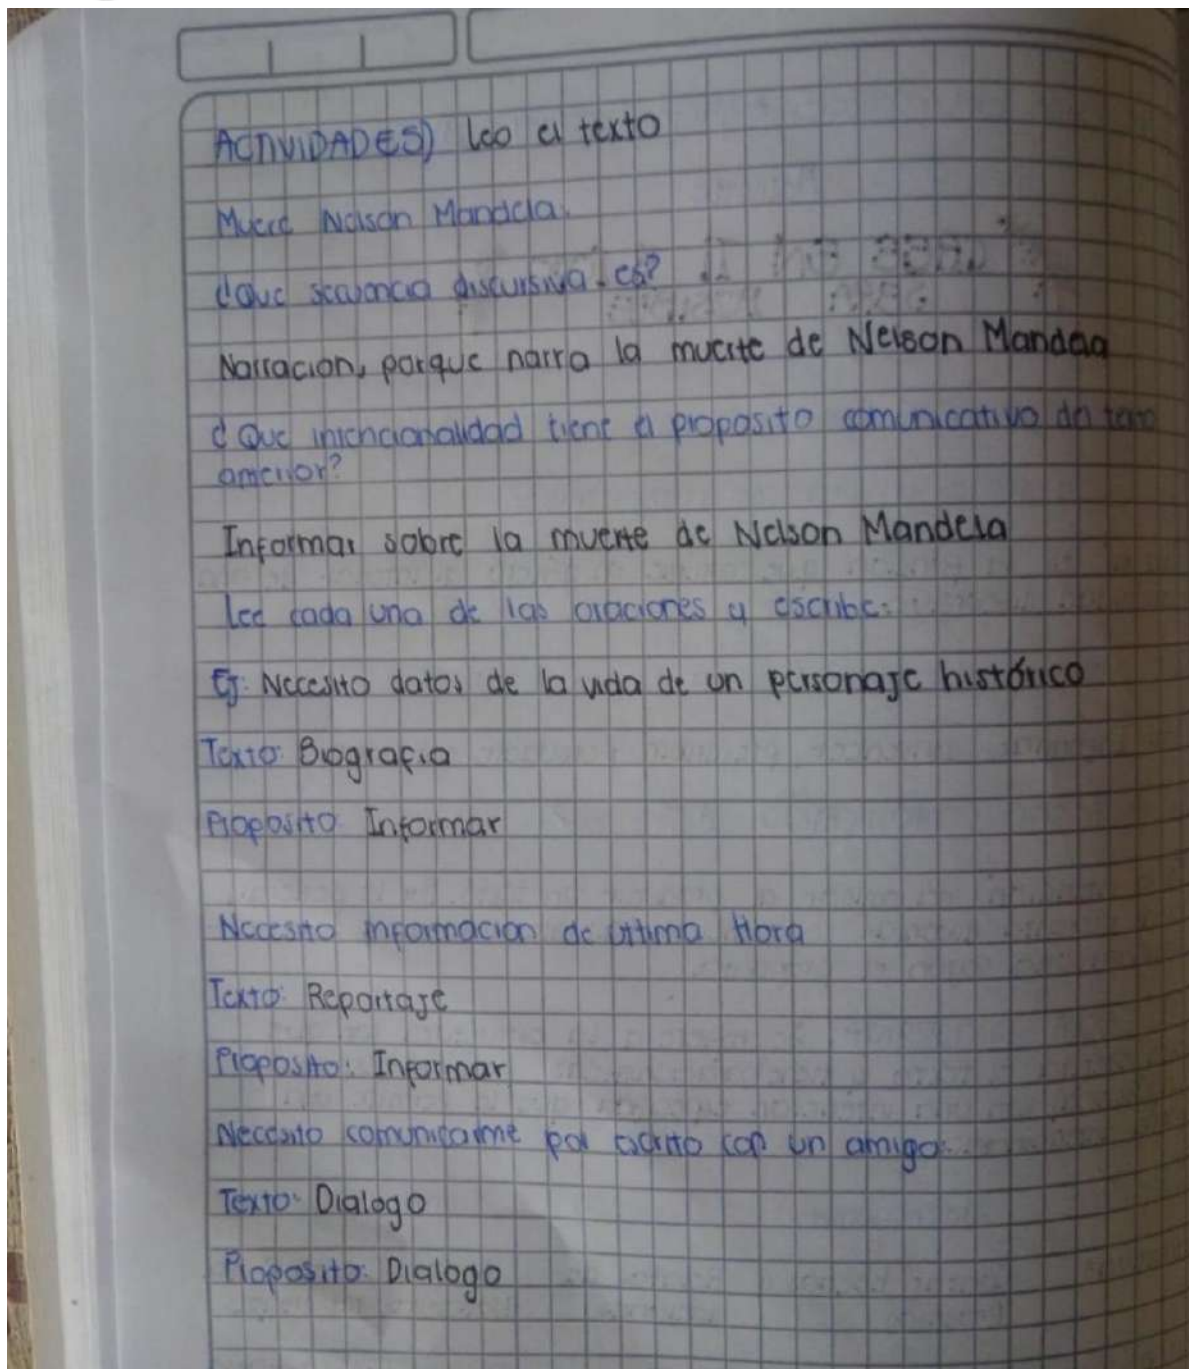 ACTIVIDADES) Leo el texto
Muere Nelson Mandela.
¿Que secuencia discursiva es?
Narracion, porque narra la muerte de Nelson Mandela
¿Que intencionalidad tiene el proposito comunicativo del tema
anterior?
Informar sobre la muerte de Nelson Mandela
Lee cada una de las oraciones y escribe:
Ej: Necesito datos de la vida de un personaje histórico
Texto: Biografia
Proposito: Informar
Necesito informacion de ultima Hora
Texto: Reportaje
Proposito: Informar
Necesito comunicarme por escrito con un amigo:
Texto: Dialogo
Proposito: Dialogo